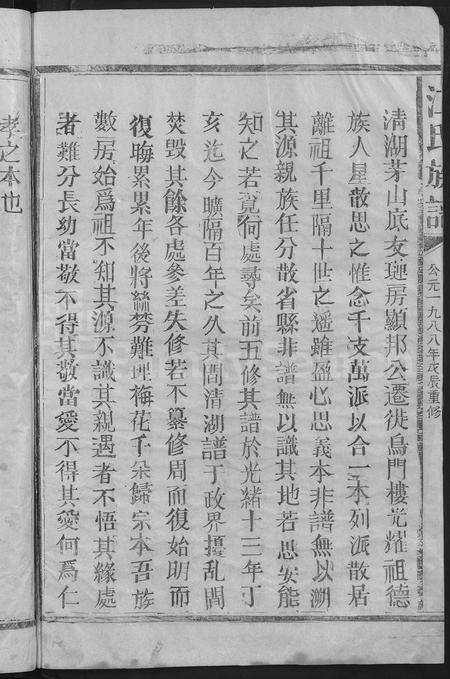 江氏族譜
公元一九八八年戊辰重修
清湖茅山底友珽房顯邦公遷徙烏門樓光耀祖德
族人星散思之惟念千支萬派以合一本列派散居
離祖千里隔十世之遥雖盈心思義本非譜無以溯
其源親族任分散省縣非譜無以識其地若思安能
知之若覓何處尋矣前五修其譜於光緒十三年丁
亥迄今曠隔百年之久其間清湖譜于政界擾乱間
焚毁其餘各處參差失修若不纂修周而復始明而
復晦累累年後將絲棼難理梅花千朵歸宗本吾族
數房始爲祖不知其源不識其親遇者不悟其緣處
者難分長幼當敬不得其敬當愛不得其愛何爲仁
孝之本也